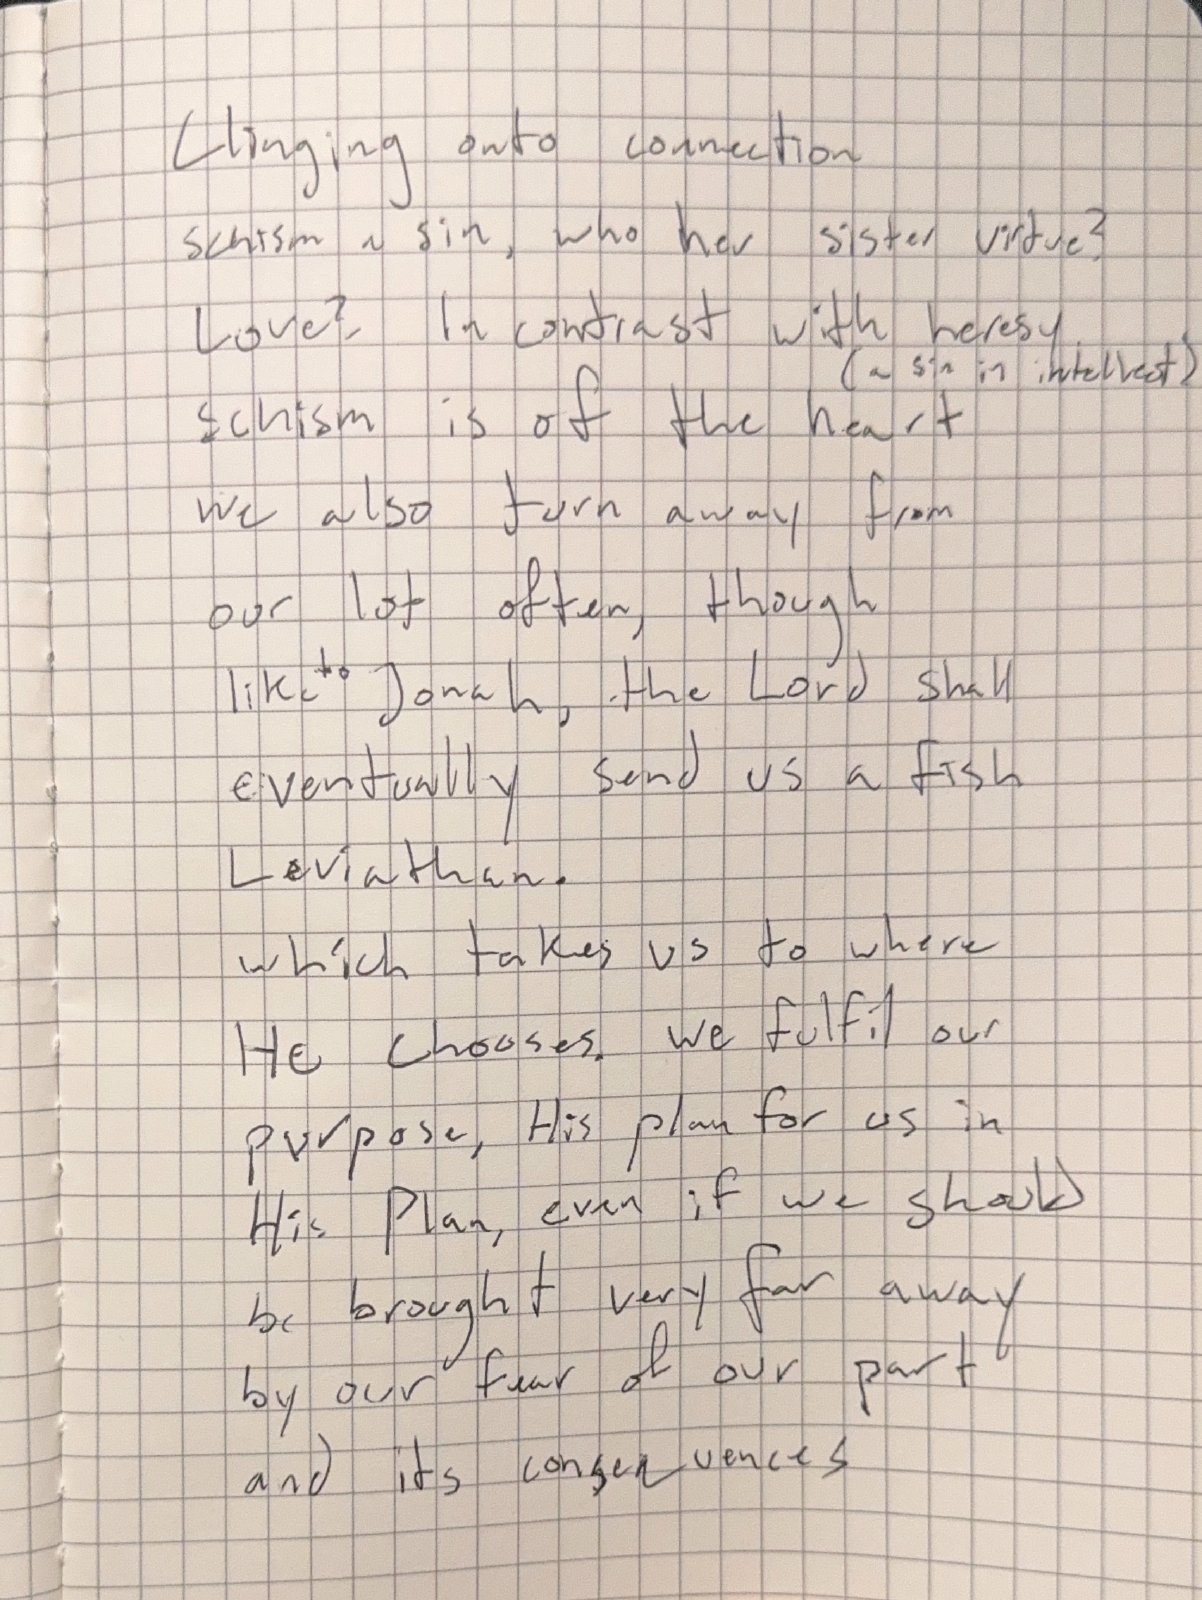 Clinging onto connection
schism a sin, who her sister virtue?
Love? In contrast with heresy
(a sin in intellect)
schism is of the heart
we also turn away from
our lot often, though
like to Jonah, the Lord shall
eventually send us a fish
Leviathan.
which takes us to where
He chooses. we fulfil our
purpose, His plan for us in
His Plan, even if we should
be brought very far away
by our fear of our part
and its consequences